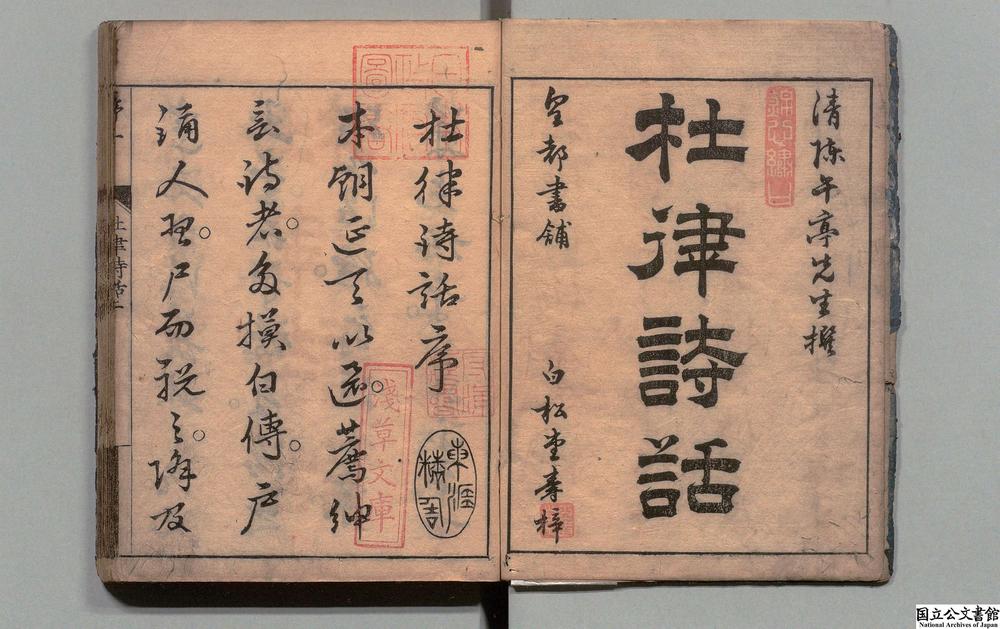 清陳午亭先生撰
杜律詩話
皇都書舗 白松堂壽梓
杜律詩話序
本朝延天以還。薦紳
言詩者。多摸白傳。戸
誦人習。尸而祝之。降及
淺草文庫
国立公文書館
National Archives of Japan